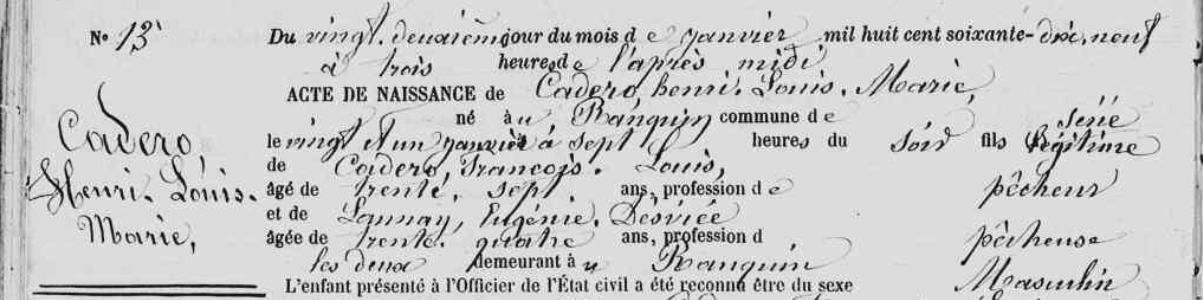 N° 13 Du vingt. deuxième jour du mois de janvier mil huit cent soixante-dix. neuf
à trois heures de l'après midi
ACTE DE NAISSANCE de Cadero, henri. Louis. Marie,
né à u Ranquin commune de Séné
le vingt et un janvier à sept heures du soir fils légitime
de Cadero, François. Louis,
âgé de trente. sept ans, profession de pêcheur
et de Launay, Eugénie. Désirée
âgée de trente. quatre ans, profession d pêcheuse
les deux demeurant à u Ranquin
L'enfant présenté à l'Officier de l'État civil a été reconnu être du sexe Masculin
Cadero
Henri. Louis.
Marie,